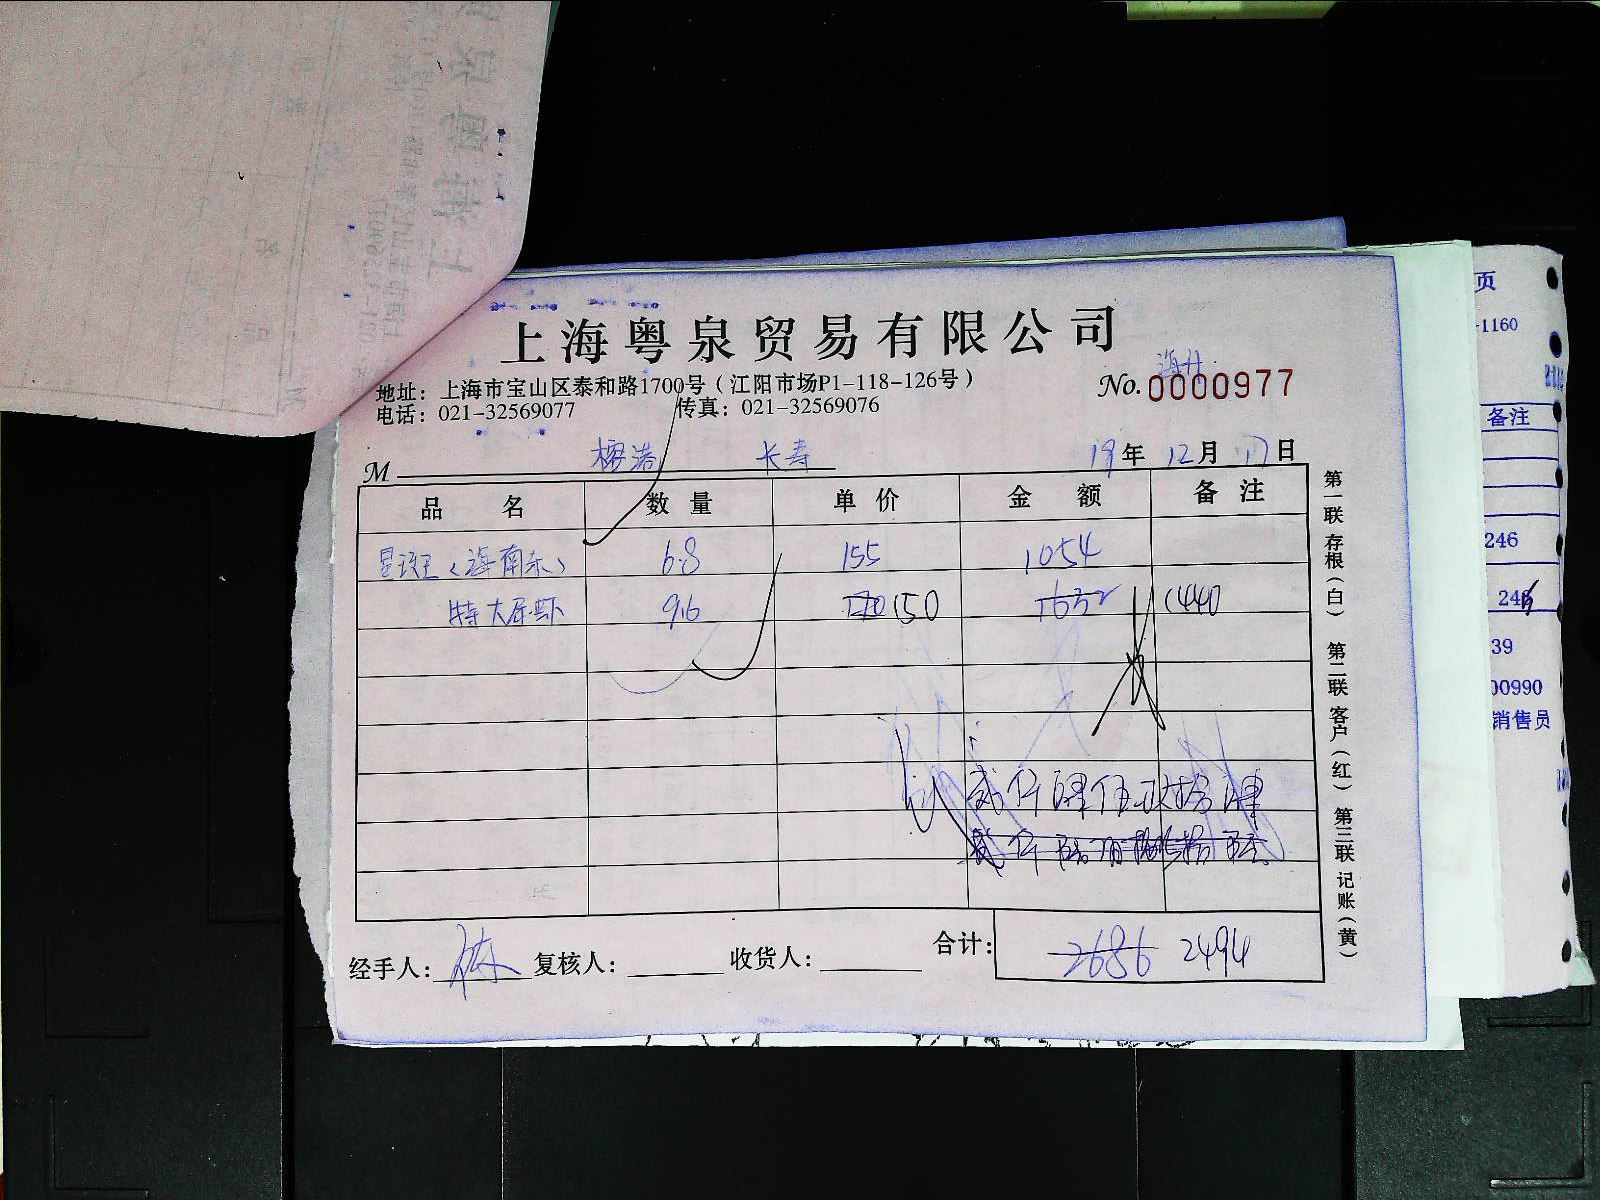 上海粤泉贸易有限公司
海升
地址：上海市宝山区泰和路1700号（江阳市场P1-118-126号）
No. 0000977
电话：021-32569077 传真：021-32569076
M 长寿 19年 12月 17日
品 名 数 量 单 价 金 额 备 注
星斑（海南东） 6.8 155 1054
特大尿虾 9.6 170 150 1632 1440
贰仟肆佰玖拾肆
贰仟陆百捌拾陆
合计： 2686 2494
经手人： 复核人： 收货人：
第一联 存根（白） 第二联 客户（红） 第三联 记账（黄）
页
-1160
备注
246
246
39
00990
销售员